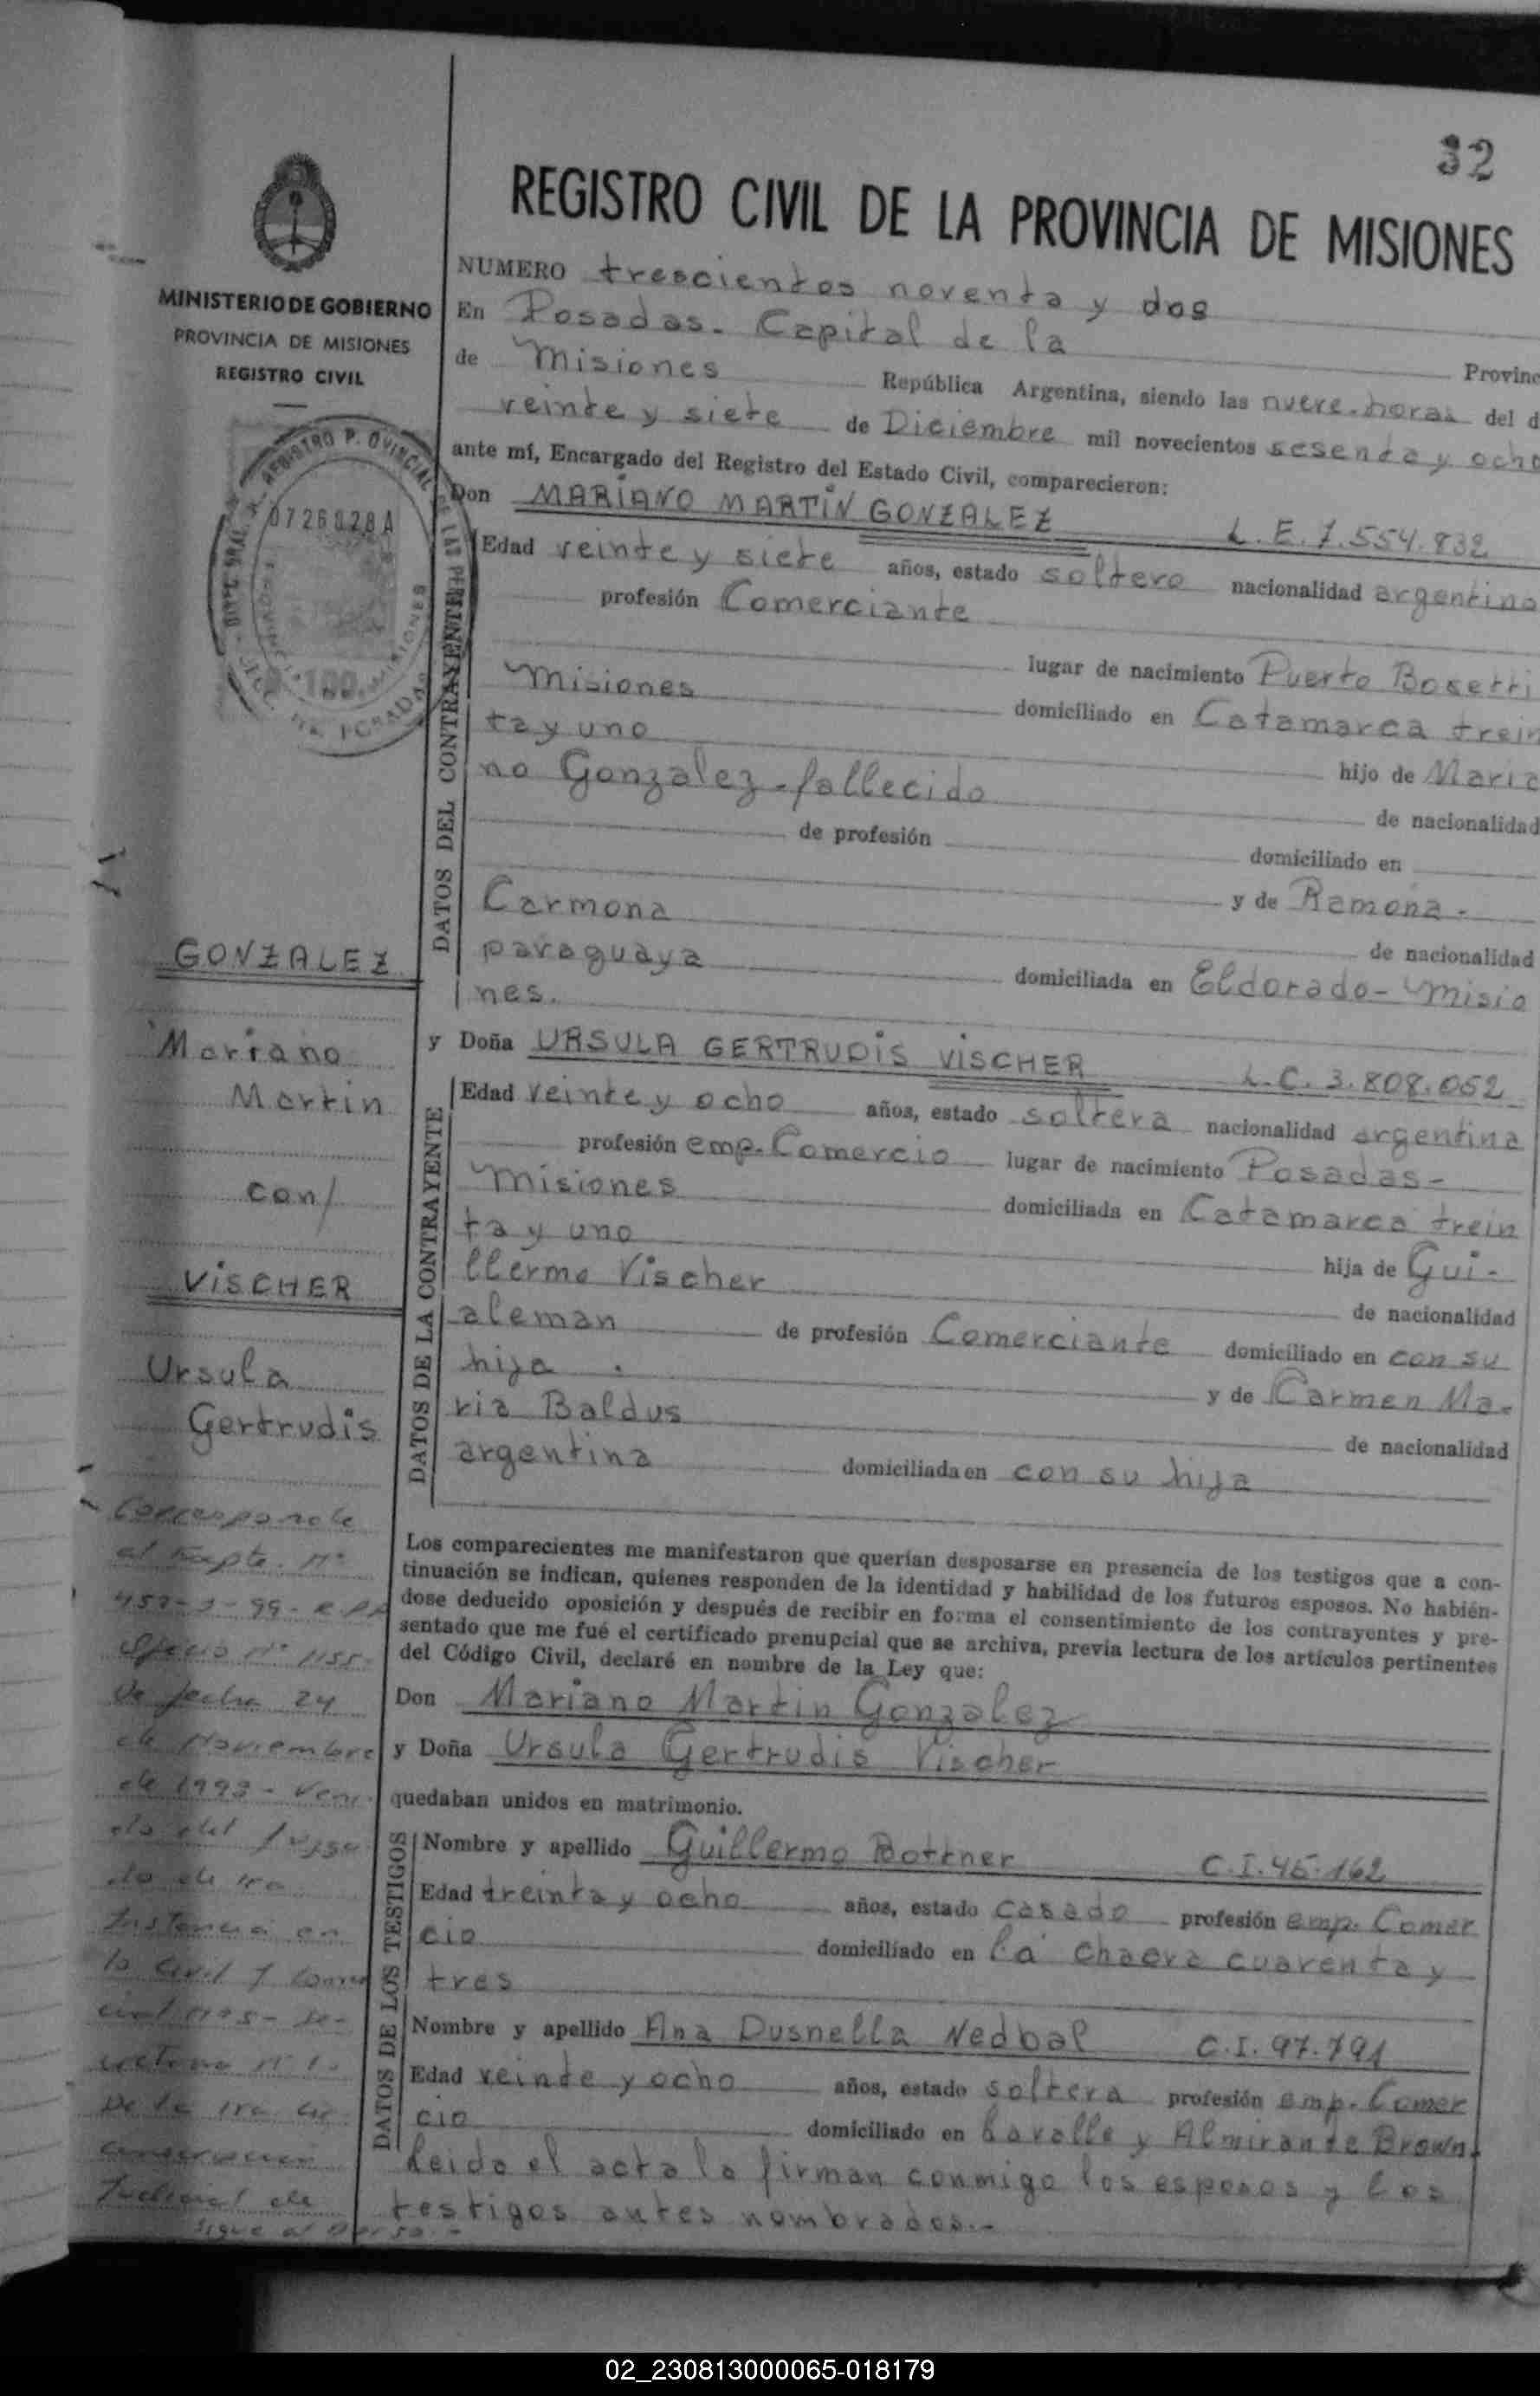 32
REGISTRO CIVIL DE LA PROVINCIA DE MISIONES
MINISTERIO DE GOBIERNO
PROVINCIA DE MISIONES
REGISTRO CIVIL
0726828A
100
NUMERO trescientos noventa y dos
En Posadas. Capital de la Provinc
de Misiones República Argentina, siendo las nueve horas del d
veinte y siete de Diciembre mil novecientos sesenta y ocho
ante mí, Encargado del Registro del Estado Civil, comparecieron:
DATOS DEL CONTRAYENTE
Don MARIANO MARTIN GONZALEZ L.E. 7.554.832
Edad veinte y siete años, estado soltero nacionalidad argentino
profesión Comerciante
lugar de nacimiento Puerto Bosetti
Misiones domiciliado en Catamarca trein
ta y uno hijo de Maria
no Gonzalez - fallecido de nacionalidad
de profesión domiciliado en
y de Ramona -
Carmona de nacionalidad
paraguaya domiciliada en Eldorado - Misio
nes.
GONZALEZ
Mariano
Martin
con/
VISCHER
Ursula
Gertrudis
DATOS DE LA CONTRAYENTE
y Doña URSULA GERTRUDIS VISCHER L.C. 3.808.052
Edad veinte y ocho años, estado soltera nacionalidad argentina
profesión emp. Comercio lugar de nacimiento Posadas -
Misiones domiciliada en Catamarca trein
ta y uno hija de Gui-
llermo Vischer de nacionalidad
aleman de profesión Comerciante domiciliado en con su
hija . y de Carmen Ma-
ria Baldus de nacionalidad
argentina domiciliada en con su hija
Los comparecientes me manifestaron que querían desposarse en presencia de los testigos que a con-
tinuación se indican, quienes responden de la identidad y habilidad de los futuros esposos. No habién-
dose deducido oposición y después de recibir en forma el consentimiento de los contrayentes y pre-
sentado que me fué el certificado prenupcial que se archiva, previa lectura de los artículos pertinentes
del Código Civil, declaré en nombre de la Ley que:
Don Mariano Martin Gonzalez
y Doña Ursula Gertrudis Vischer
quedaban unidos en matrimonio.
DATOS DE LOS TESTIGOS
Nombre y apellido Guillermo Bottner C.I. 45.162
Edad treinta y ocho años, estado casado profesión emp. Comer
cio domiciliado en la chacra cuarenta y
tres
Nombre y apellido Ana Dusnella Nedbal C.I. 97.791
Edad veinte y ocho años, estado soltera profesión emp. Comer
cio domiciliado en Lavalle y Almirante Brown.
Leida el acta la firman conmigo los esposos y los
testigos antes nombrados.-
Corresponde
al Expte. Nº
Oficio Nº 1155
de fecha 24
de Noviembre
de
do del Juzga
do de 1ra
Instancia en
lo Civil y Comer
cial
De la 1ra
Judicial de
sigue al Dorso.-
02_230813000065-018179